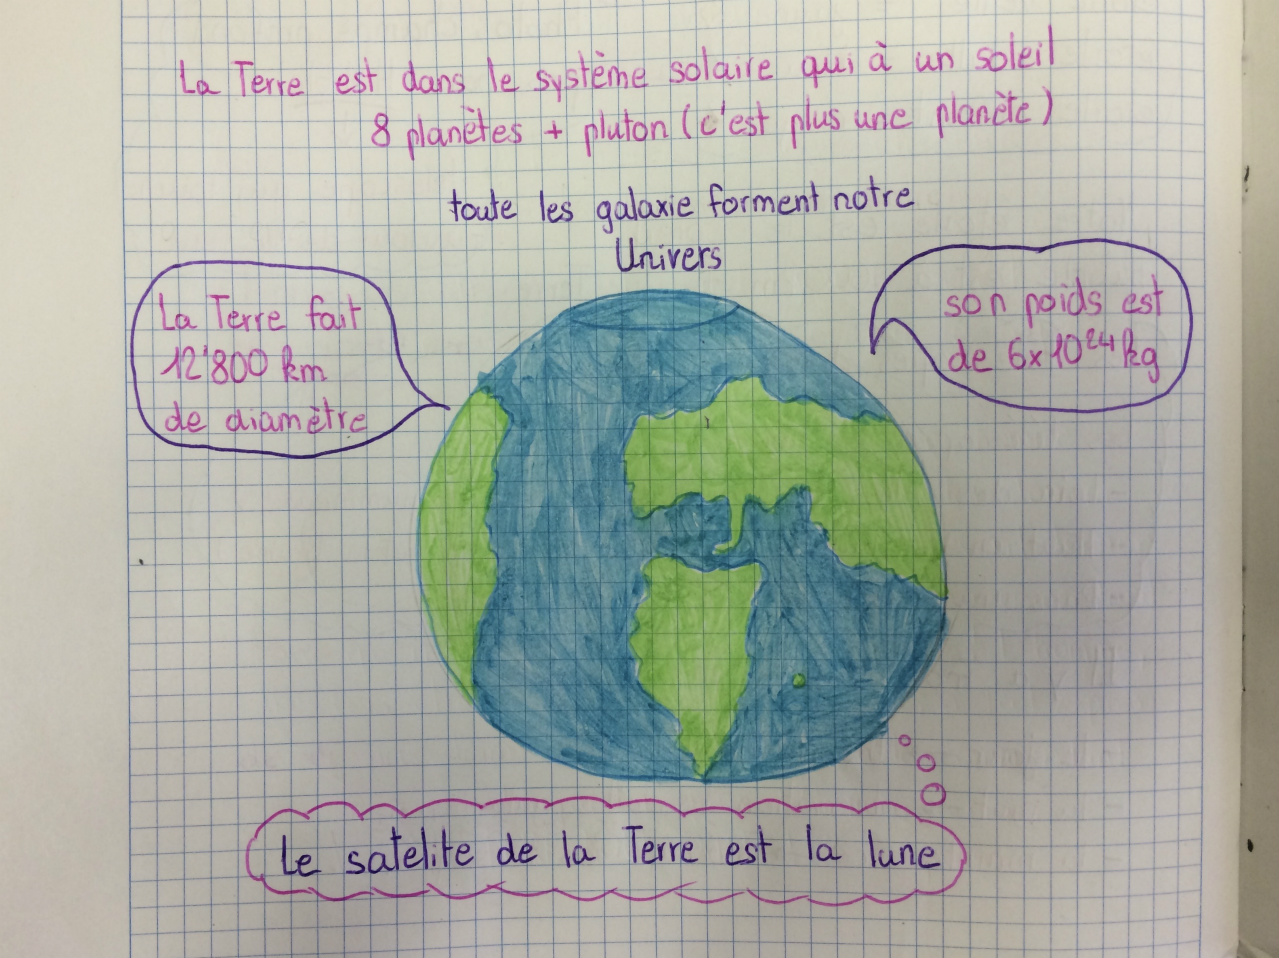 La Terre est dans le système solaire qui à un soleil
8 planètes + pluton (c'est plus une planète)
toute les galaxie forment notre
Univers
La Terre fait
12'800 km
de diamètre
son poids est
de 6x10²⁴ kg
Le satelite de la Terre est la lune